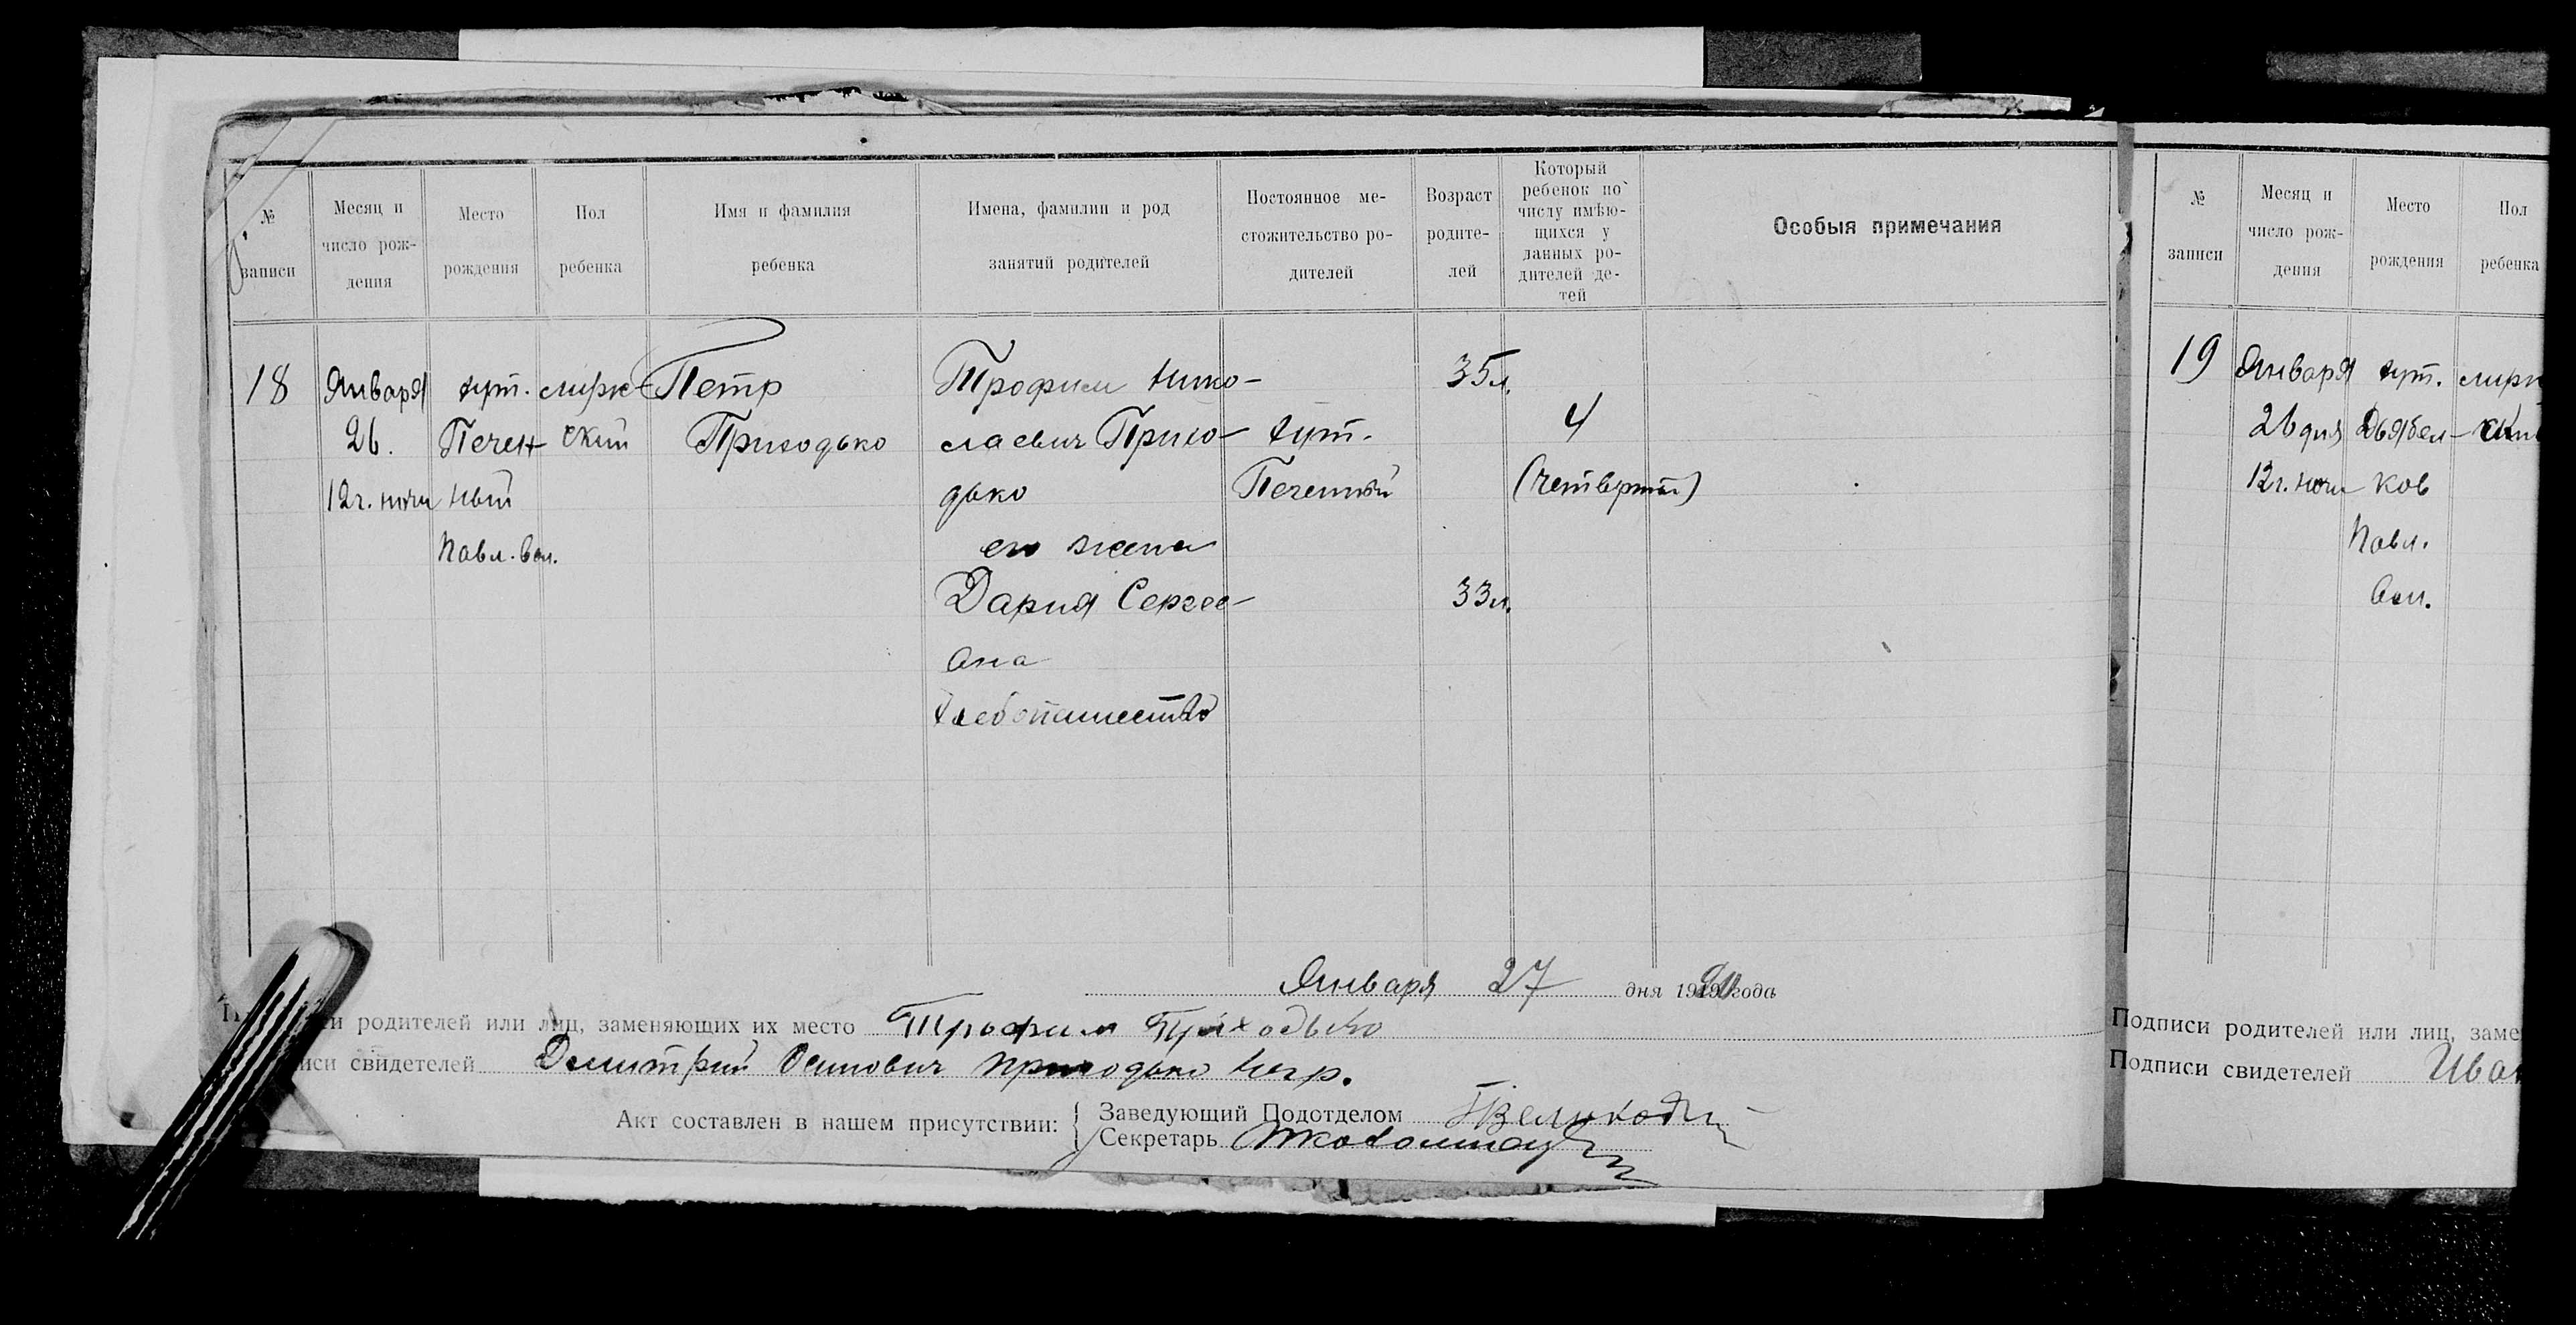 № записи
Месяц и число рождения
Место рождения
Пол ребенка
Имя и фамилия ребенка
Имена, фамилии и род занятий родителей
Постоянное местожительство родителей
Возраст родителей
Который ребенок по числу имѣющихся у данных родителей детей
Особыя примечания
18
Января
26.
12 г. ночи
хут.
Печен-
ный
Павл. вол.
мужс-
ский
Петр
Приходько
Трофим Нико-
лаевич Прихо-
дько
его жена
Дария Сергее-
вна
Хлебопашество
хут.
Печенный
35 л.
33 л.
4
(четвертый)
Января 27 дня 1920 года
родителей или лиц, заменяющих их место Трофим Приходько
свидетелей Дмитрий Осипович Приходько негр.
Акт составлен в нашем присутствии:
Заведующий Подотделом
Секретарь
№ записи
Месяц и число рождения
Место рождения
Пол ребенка
19
Января
26 дня
12 г. ночи
хут.
Дьябел-
ков
Павл.
вол.
Подписи родителей или лиц, заме
Подписи свидетелей Иван